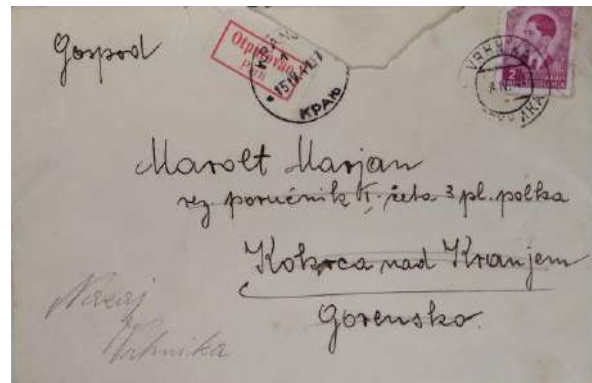 Gospod
Otputovao
KRANJ
15.IV.41.17
КРАЊ
VRHNIKA
ВРХНИКА
2
Marolt Marjan
rez poručnik I. četa 3 pl. polka
Kokrca nad Kranjem
Gorensko.
Nazaj
Vrhnika